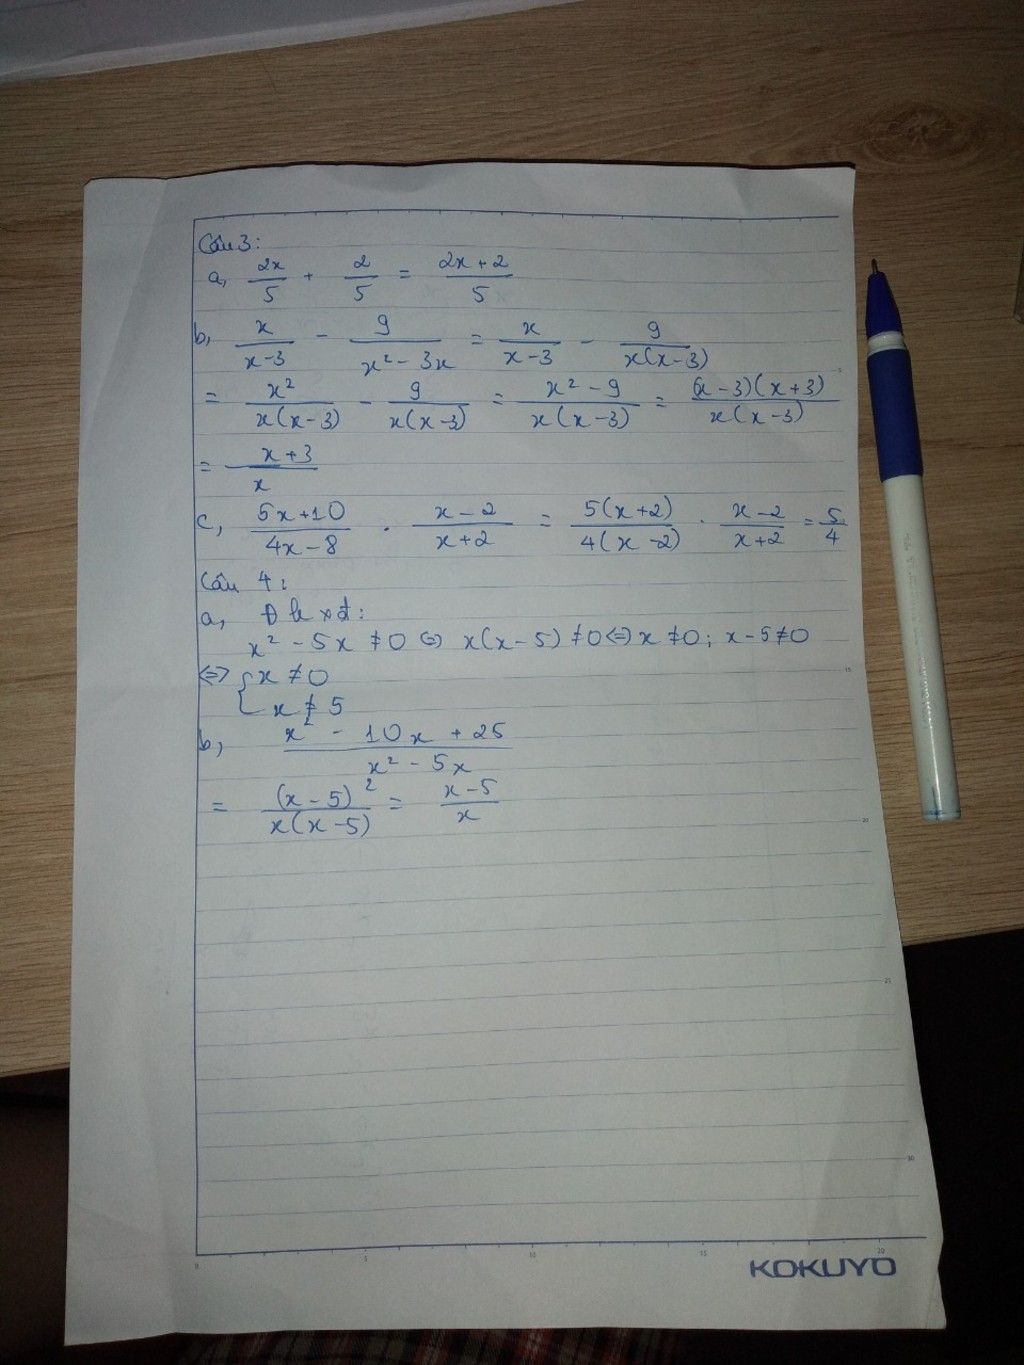 Câu 3:
a, 2x/5 + 2/5 = 2x+2/5
b, x/x-3 - 9/x² - 3x = x/x-3 - 9/x(x-3)
= x²/x(x-3) - 9/x(x-3) = x² - 9/x(x-3) = (x-3)(x+3)/x(x-3)
= x+3/x
c, 5x+10/4x-8 . x-2/x+2 = 5(x+2)/4(x-2) . x-2/x+2 = 5/4
Câu 4:
a, Đkxđ:
x² - 5x ≠ 0 ⇔ x(x-5) ≠ 0 ⇔ x ≠ 0; x-5 ≠ 0
⇔ { x ≠ 0
x ≠ 5
b, x² - 10x + 25/x² - 5x
= (x-5)²/x(x-5) = x-5/x
5
15
20
25
30
0 5 10 15 20
KOKUYO